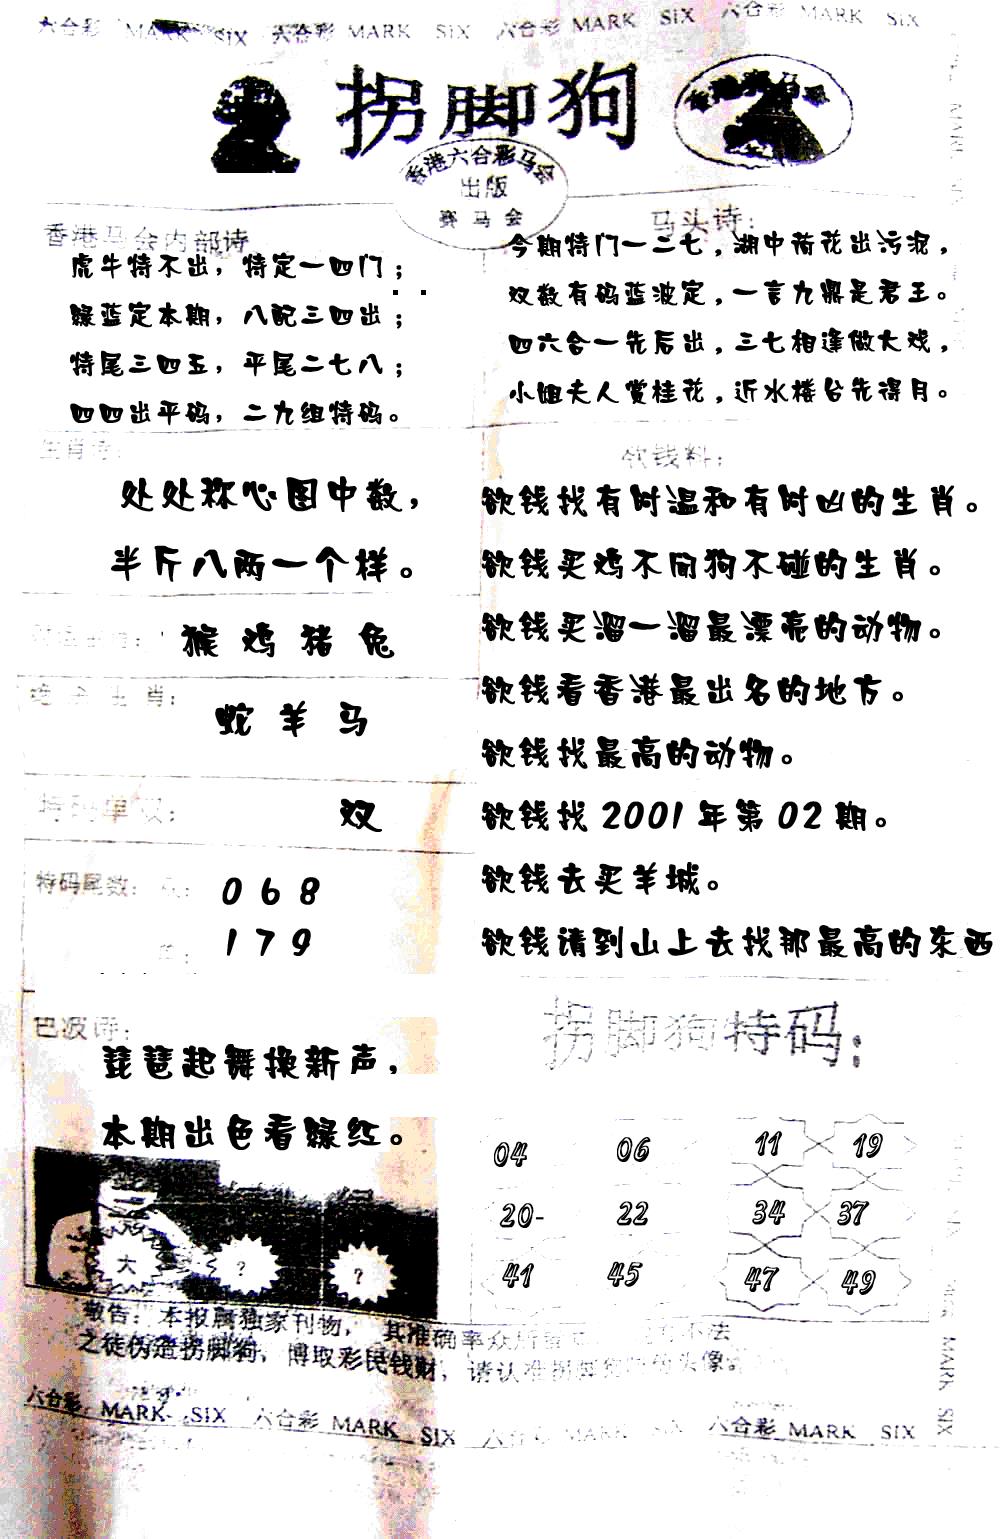 六合彩 MARK SIX 六合彩 MARK SIX 六合彩 MARK SIX 六合彩 MARK SIX
拐脚狗
香港六合彩马会
出版
赛马会
香港马会内部诗
虎牛特不出，特定一四门；
绿蓝定本期，八配三四出；
特尾三四五，平尾二七八；
四四出平码，二九组特码。
马头诗：
今期特门一二七，湖中荷花出污泥，
双数有码蓝波定，一言九鼎是君王。
四六合一先后出，三七相逢做大戏，
小姐夫人赏桂花，近水楼台先得月。
生肖诗：
处处称心图中数，
半斤八两一个样。
猴 鸡 猪 兔
生肖：
蛇 羊 马
特码单双：
双
特码尾数：
0 6 8
1 7 9
欲钱料：
欲钱找有时温和有时凶的生肖。
欲钱买鸡不闻狗不碰的生肖。
欲钱买溜一溜最漂亮的动物。
欲钱看香港最出名的地方。
欲钱找最高的动物。
欲钱找 2001 年第 02 期。
欲钱去买羊城。
欲钱请到山上去找那最高的东西
巴波诗：
琵琶起舞换新声，
本期出色看绿红。
大 ? ?
拐脚狗特码：
04 06 11 19
20- 22 34 37
41 45 47 49
敬告：本报属独家刊物，其准确率众所 不法
之徒伪造拐脚狗，博取彩民钱财，请认准拐脚 头像。
六合彩 MARK SIX 六合彩 MARK SIX 六合彩 MARK SIX 六合彩 MARK SIX
MARK SIX